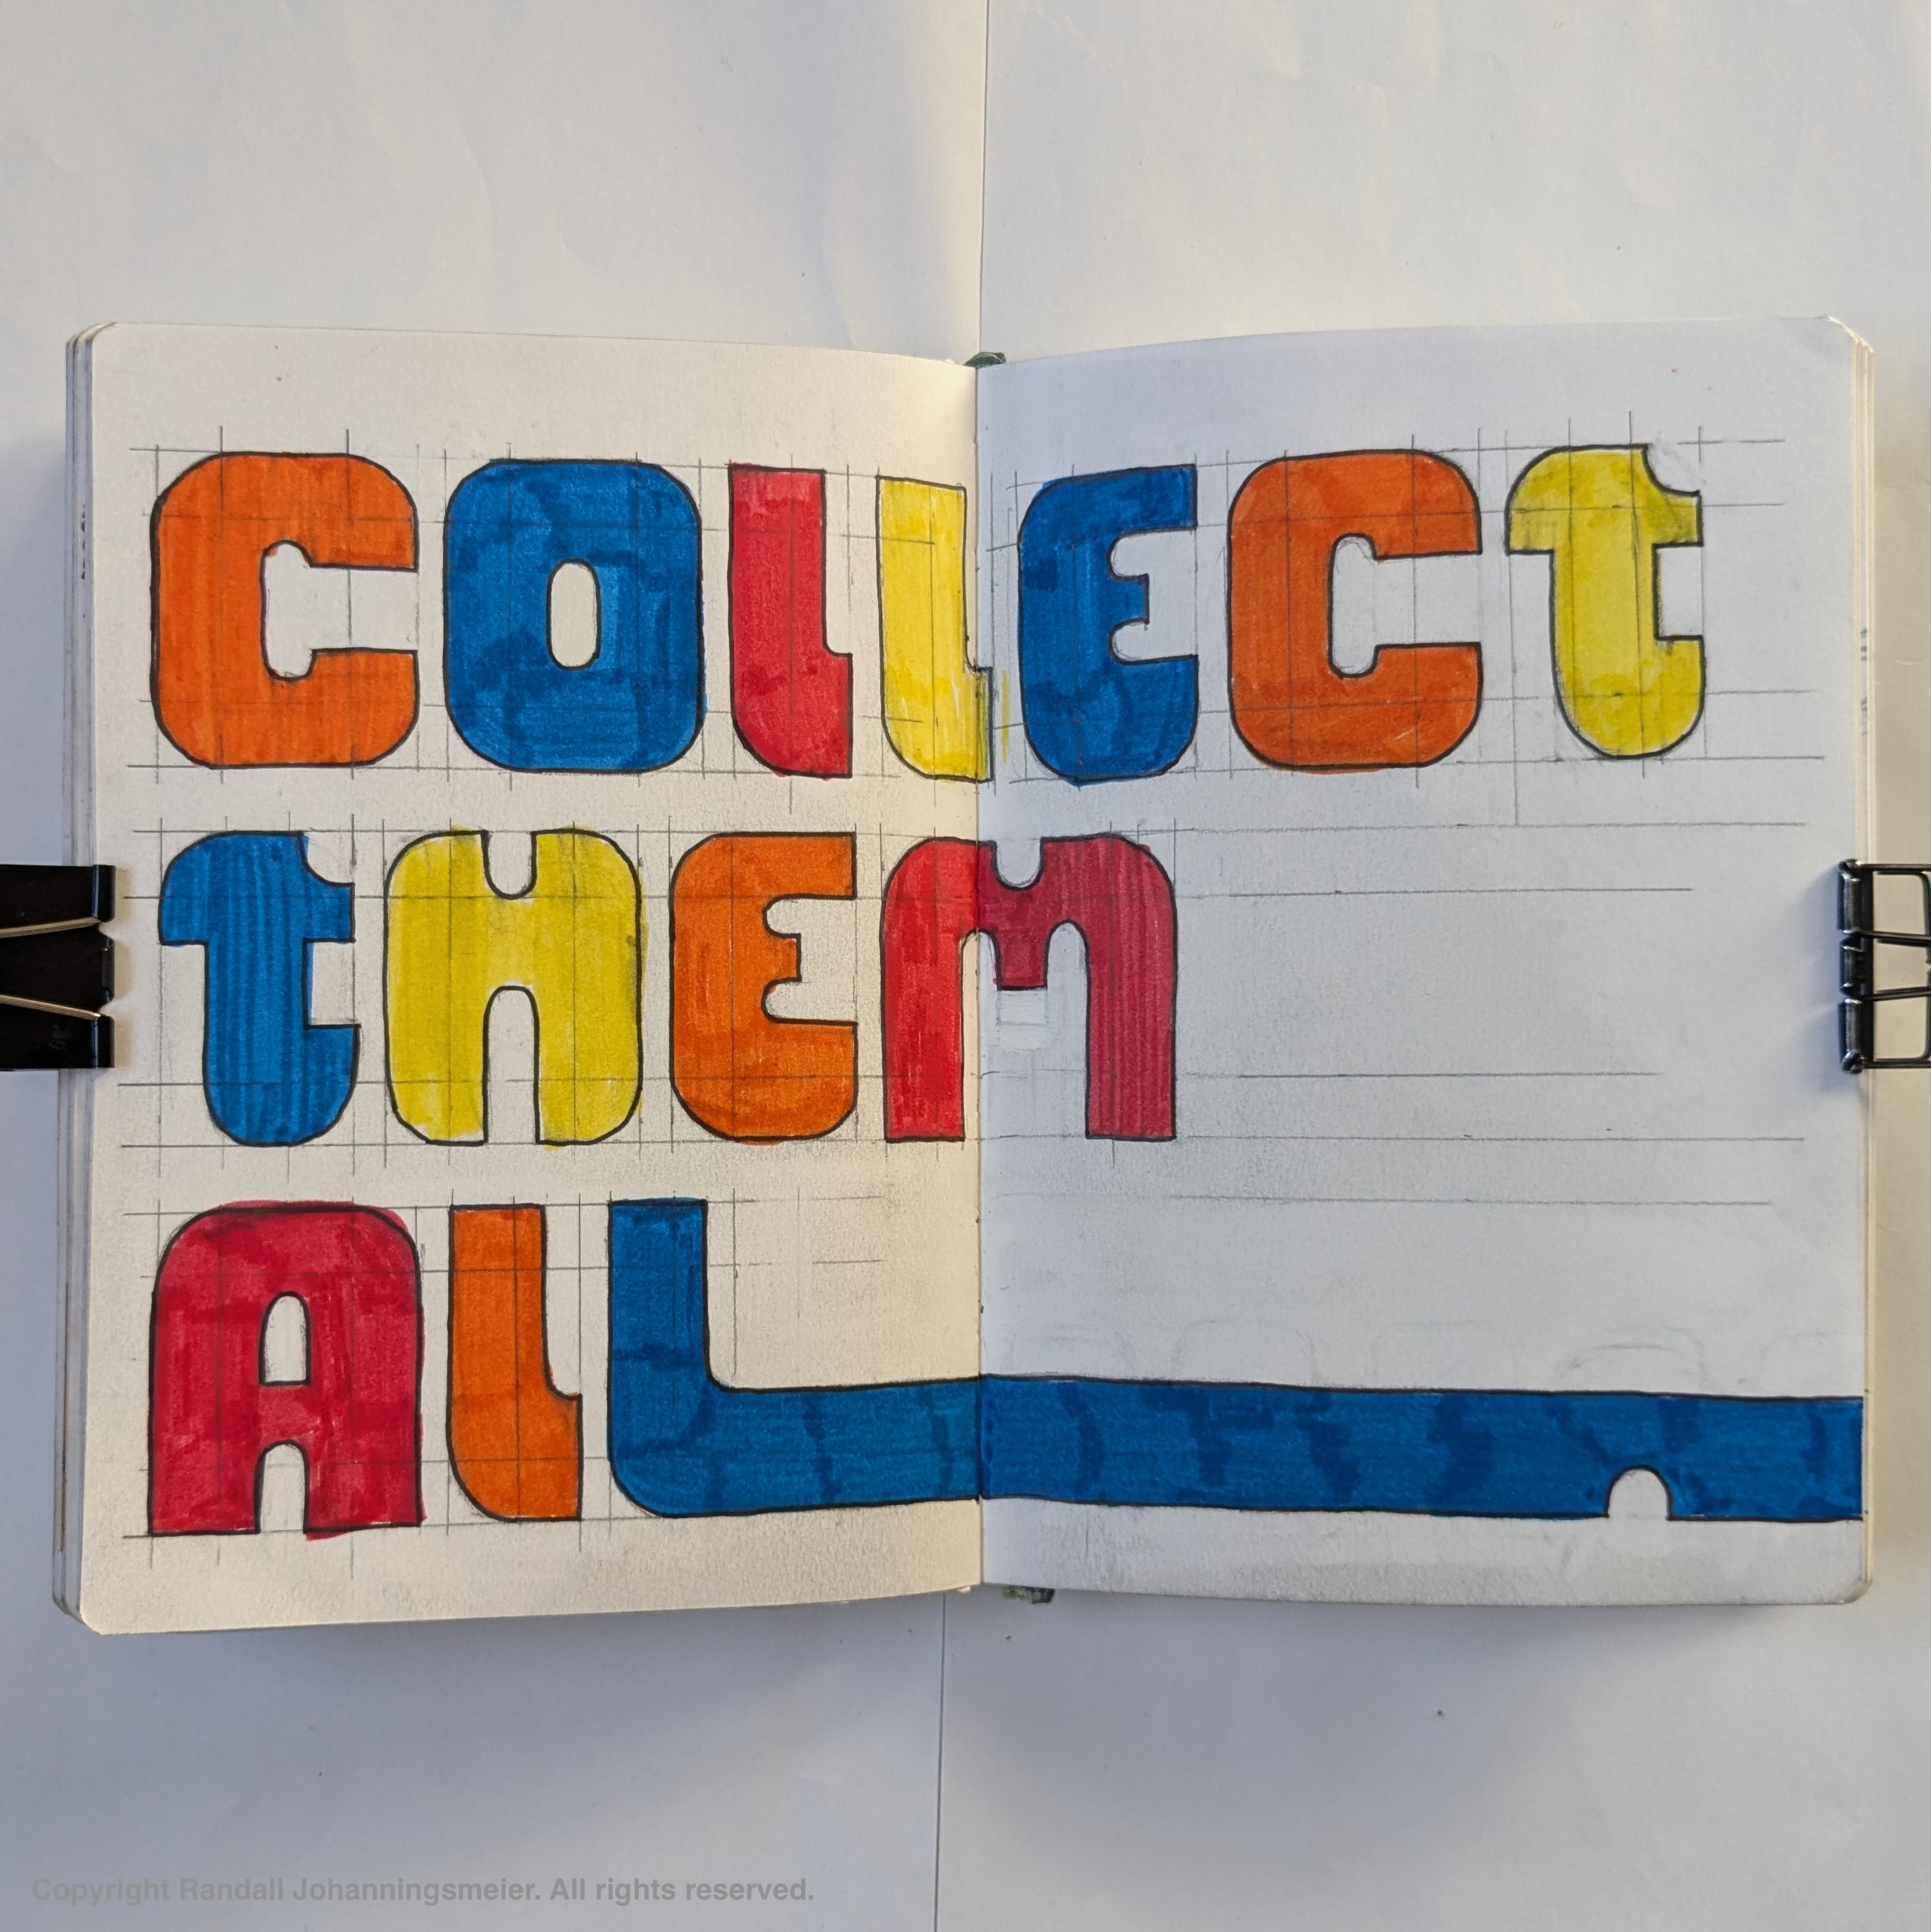 COLLECt
tHEM
ALL
Copyright Randall Johanningsmeier. All rights reserved.